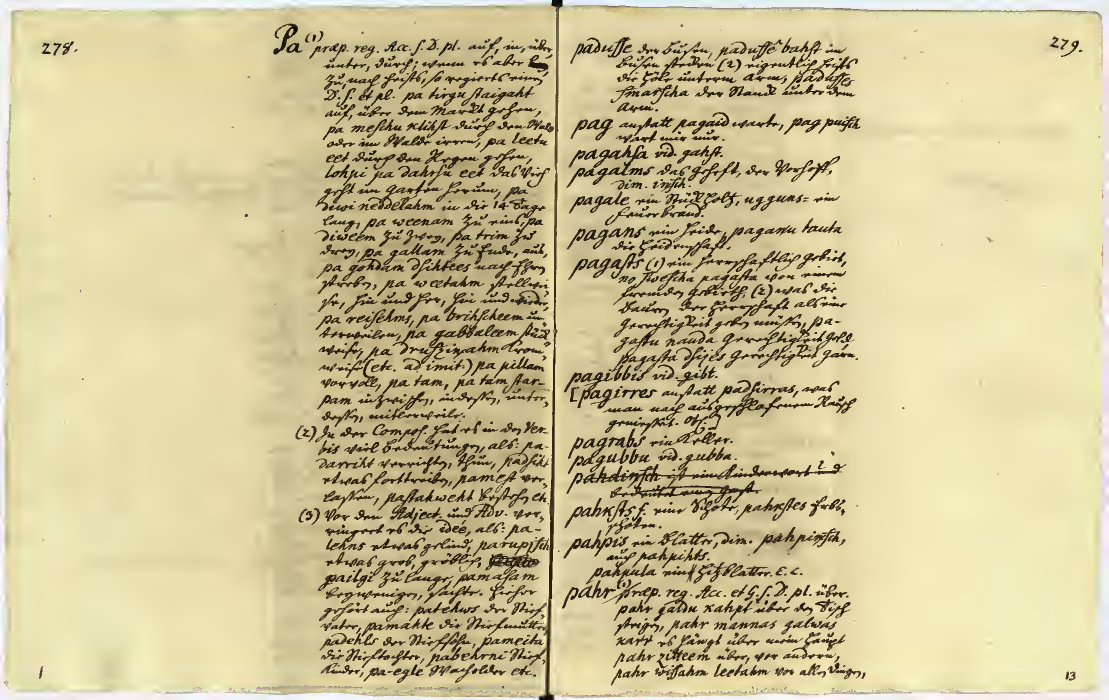 278.
Pa (1) præp. reg. Acc. S. D. pl. auf, in, über,
unter, durch; wenn es aber
zu, nach heißt, so regierts einen
D. S. et pl. pa tirgu staigaht
auf, über dem Markt gehen,
pa meschu klihst durch den Wald
oder im Walde irren, pa leetu
eet durch den Regen gehen,
lohpi pa dahrsu eet das Vieh
geht im Garten herum, pa
diwi neddelahm in die 14 Tage
lang, pa weenam zu eins, pa
diweem zu zwey, pa trim zu
drey, pa gallam zu Ende, aus,
pa gohdam dsihtees nach Ehren
streben, pa weetahm stellwei-
se, hin und her, hin und wieder,
pa reisehms, pa brihscheem un-
terweilen, pa gabbaleem stück-
weise, pa druszinahm
weise (etc. ad imit.) pa pillam
vorvoll, pa tam, pa tam star-
pam inzwischen, indeßen, unter-
deßen, mitlerweile.
(2) In der Compos. hat es in den Ver-
bis viel Bedeutungen, als: pa-
darriht verrichten, thun, padsiht
etwas forttreiben, pamest ver-
laßen, pastahweht bestehen etc.
(3) Vor den Adject. und Adv. ver-
ringert es die idée, als: pa-
lehns etwas gelind, parupjsch
etwas grob, gröblich,
pailgi zu lange, pamasam
bey wenigen, sachte. Hieher
gehört auch: patehws der Stief-
vater, pamahte die Stiefmutter
padehls der Stiefsohn, pameita
die Stieftochter, pabehrni Stief-
kinder, pa-egle Wacholder etc.
279.
padusse der Busen, padussê bahst im
Busen stecken (2) eigentlich heißts
die Höle unterm Arm, padusses
smarscha der Stank unter dem
Arm.
pag anstatt pagaid warte, pag puisch
wart mir nur.
pagahsa vid. gahst.
pagalms das Geheft, der Vorhoff,
dim. insch.
pagale ein Stück Holz, ugguns= ein
Feuerbrand.
pagans ein Heide, paganu tauta
die Heidenschaft.
pagasts (1) ein herrschaftlich Gebiet,
no swescha pagasta von einem
fremden Gebieth, (2) was die
Bauren der Herrschaft als eine
Gerechtigkeit geben müßen, pa-
gastu nauda Gerechtigkeit Geld
pagasta dsijes Gerechtigkeit Garn.
pagibbis vid. gibt.
[pagirres anstatt padsirras, was
man nach ausgeschlafenem Rausch
genießet. Obs.]
pagrabs ein Keller.
pagubbu vid. gubba.
pahdinsch ist ein Kinderwort und
bedeutet einen
pahksts f. eine Schote, pahkstes Erbs-
schoten.
pahpis ein Blatter, dim. pahpinsch,
auch pahpihts.
pahpula eine Hitzblatter. E. L.
pahr (1) præp. reg. Acc. et G. S. D. pl. über.
pahr galdu kahpt über den Tisch
steigen, pahr mannas galwas
karr es hängt über mein Haupt
pahr zitteem über, vor andern,
pahr wissahm leetahm vor allen Dingen,
13